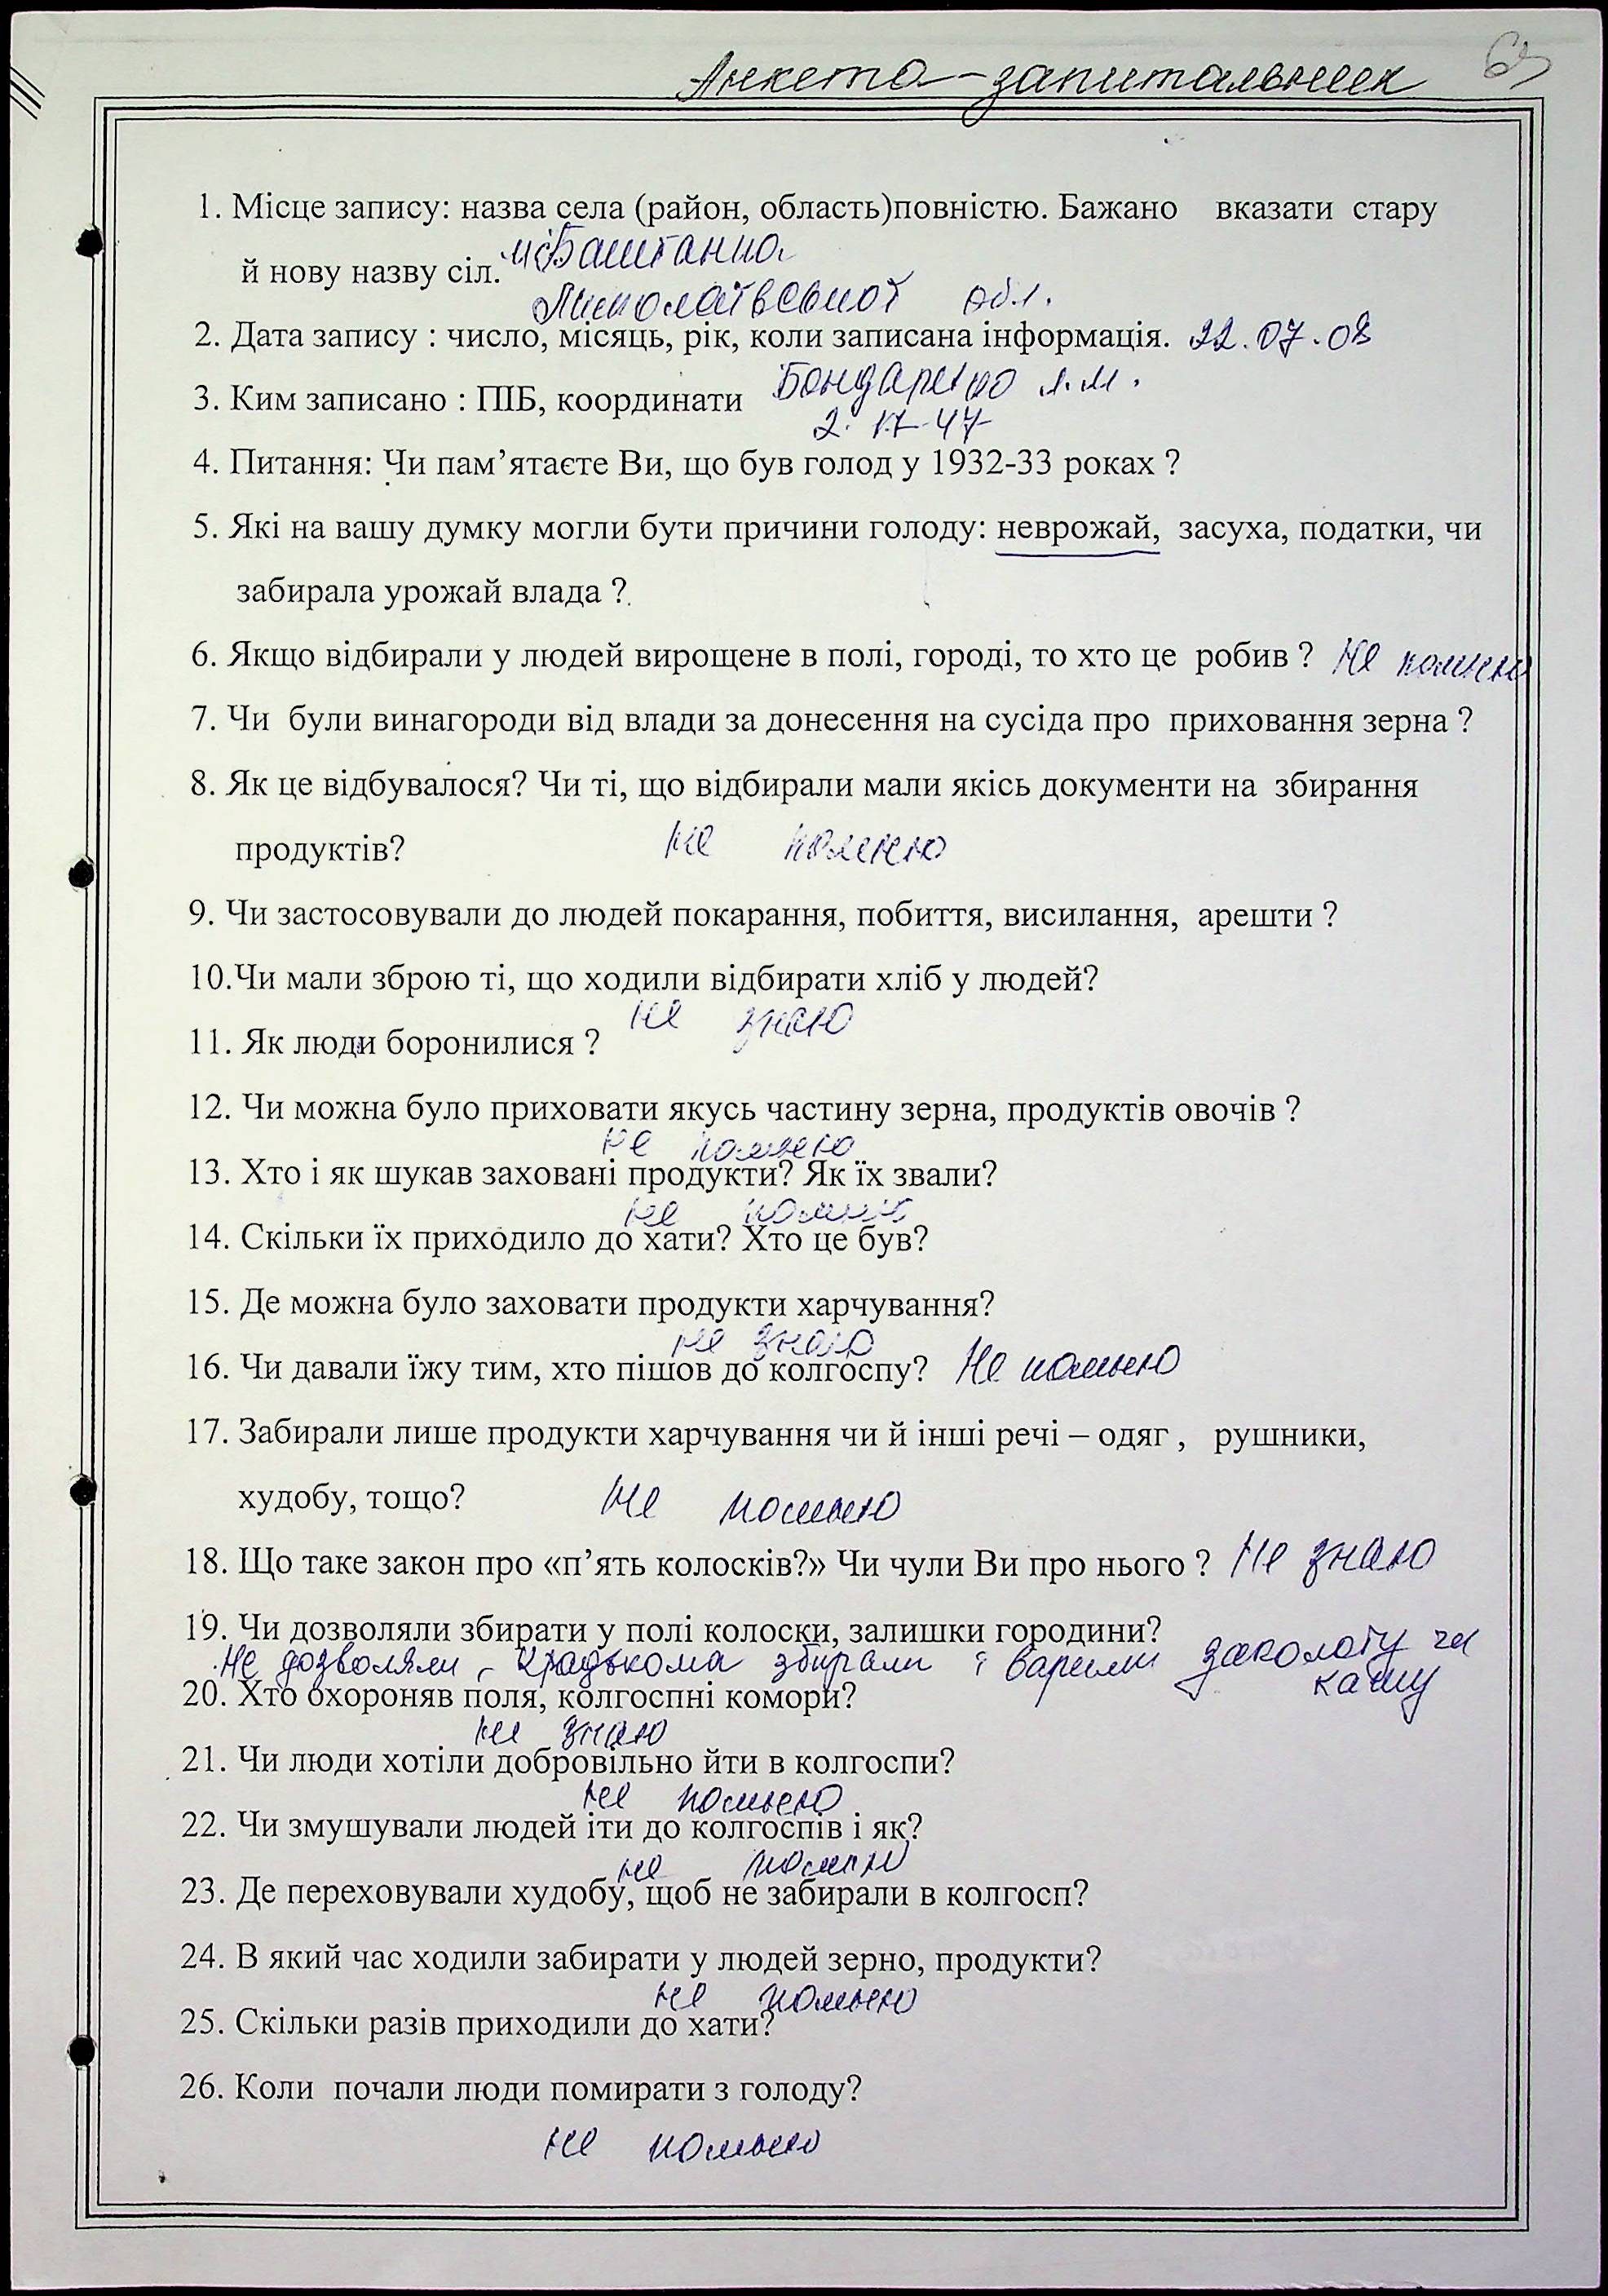 Анкета-запитальник
1. Місце запису: назва села (район, область)повністю. Бажано вказати стару
й нову назву сіл. м. Баштанка
Миколаївської обл.
2. Дата запису : число, місяць, рік, коли записана інформація. 22.07.08
3. Ким записано : ПІБ, координати Бондаренко Л.М.
2-17-47
4. Питання: Чи пам’ятаєте Ви, що був голод у 1932-33 роках ?
5. Які на вашу думку могли бути причини голоду: неврожай, засуха, податки, чи
забирала урожай влада ?
6. Якщо відбирали у людей вирощене в полі, городі, то хто це робив ? Не помню
7. Чи були винагороди від влади за донесення на сусіда про приховання зерна ?
8. Як це відбувалося? Чи ті, що відбирали мали якісь документи на збирання
продуктів? не помню
9. Чи застосовували до людей покарання, побиття, висилання, арешти ?
10.Чи мали зброю ті, що ходили відбирати хліб у людей?
не знаю
11. Як люди боронилися ?
12. Чи можна було приховати якусь частину зерна, продуктів овочів ?
не помню
13. Хто і як шукав заховані продукти? Як їх звали?
не помню
14. Скільки їх приходило до хати? Хто це був?
15. Де можна було заховати продукти харчування?
не знаю
16. Чи давали їжу тим, хто пішов до колгоспу? Не помню
17. Забирали лише продукти харчування чи й інші речі – одяг , рушники,
худобу, тощо? Не помню
18. Що таке закон про «п’ять колосків?» Чи чули Ви про нього ? Не знаю
19. Чи дозволяли збирати у полі колоски, залишки городини?
Не дозволяли, крадькома збирали і варили заколоту чи
кашу
20. Хто охороняв поля, колгоспні комори?
не знаю
21. Чи люди хотіли добровільно йти в колгоспи?
не помню
22. Чи змушували людей іти до колгоспів і як?
не помню
23. Де переховували худобу, щоб не забирали в колгосп?
24. В який час ходили забирати у людей зерно, продукти?
не помню
25. Скільки разів приходили до хати?
26. Коли почали люди помирати з голоду?
не помню